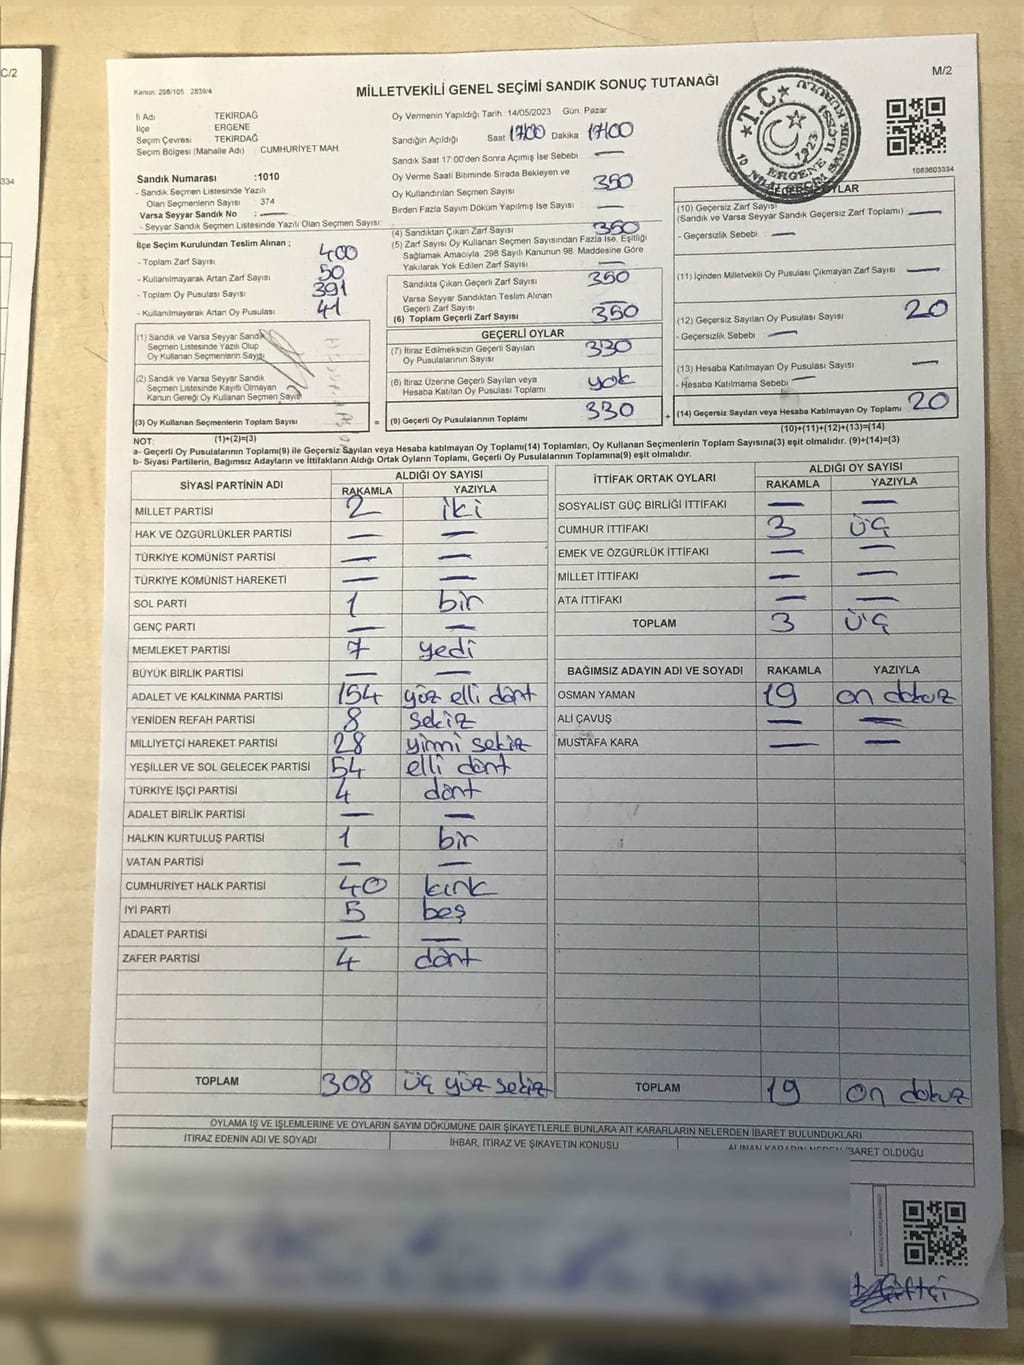 C/2
334
M/2
Kanun: 298/105 2839/4
MİLLETVEKİLİ GENEL SEÇİMİ SANDIK SONUÇ TUTANAĞI
T.C.
1923
ERGENE İLÇESİ
1083603334
İl Adı TEKİRDAĞ
İlçe ERGENE
Seçim Çevresi TEKİRDAĞ
Seçim Bölgesi (Mahalle Adı) CUMHURİYET MAH.
Sandık Numarası :1010
- Sandık Seçmen Listesinde Yazılı
Olan Seçmenlerin Sayısı : 374
Varsa Seyyar Sandık No : —
- Seyyar Sandık Seçmen Listesinde Yazılı Olan Seçmen Sayısı:
İlçe Seçim Kurulundan Teslim Alınan ;
- Toplam Zarf Sayısı 400
- Kullanılmayarak Artan Zarf Sayısı 50
- Toplam Oy Pusulası Sayısı 391
- Kullanılmayarak Artan Oy Pusulası 41
(1) Sandık ve Varsa Seyyar Sandık
Seçmen Listesinde Yazılı Olup
Oy Kullanan Seçmenlerin Sayısı
(2) Sandık ve Varsa Seyyar Sandık
Seçmen Listesinde Kayıtlı Olmayan
Kanun Gereği Oy Kullanan Seçmen Sayısı
(3) Oy Kullanan Seçmenlerin Toplam Sayısı
(1)+(2)=(3)
Oy Vermenin Yapıldığı Tarih: 14/05/2023 Gün: Pazar
Sandığın Açıldığı Saat 17:00 Dakika 17:00
Sandık Saat 17:00'den Sonra Açımış İse Sebebi —
Oy Verme Saati Bitiminde Sırada Bekleyen ve
Oy Kullandırılan Seçmen Sayısı 350
Birden Fazla Sayım Döküm Yapılmış İse Sayısı —
(4) Sandıktan Çıkan Zarf Sayısı 350
(5) Zarf Sayısı Oy Kullanan Seçmen Sayısından Fazla İse, Eşitliği
Sağlamak Amacıyla, 298 Sayılı Kanunun 98. Maddesine Göre
Yakılarak Yok Edilen Zarf Sayısı —
Sandıkta Çıkan Geçerli Zarf Sayısı 350
Varsa Seyyar Sandıktan Teslim Alınan
Geçerli Zarf Sayısı —
(6) Toplam Geçerli Zarf Sayısı 350
GEÇERLİ OYLAR
(7) İtiraz Edilmeksizin Geçerli Sayılan
Oy Pusulalarının Sayısı 330
(8) İtiraz Üzerine Geçerli Sayılan veya
Hesaba Katılan Oy Pusulası Sayısı yok
= (9) Geçerli Oy Pusulalarının Toplamı 330
GEÇERSİZ OYLAR
(10) Geçersiz Zarf Sayısı
(Sandık ve Varsa Seyyar Sandık Geçersiz Zarf Toplamı) —
- Geçersizlik Sebebi : —
(11) İçinden Milletvekili Oy Pusulası Çıkmayan Zarf Sayısı —
(12) Geçersiz Sayılan Oy Pusulası Sayısı 20
- Geçersizlik Sebebi : —
(13) Hesaba Katılmayan Oy Pusulası Sayısı —
- Hesaba Katılmama Sebebi —
+ (14) Geçersiz Sayılan veya Hesaba Katılmayan Oy Toplamı 20
(10)+(11)+(12)+(13)=(14)
NOT:
a- Geçerli Oy Pusulalarının Toplamı(9) ile Geçersiz Sayılan veya Hesaba katılmayan Oy Toplamı(14) Toplamları, Oy Kullanan Seçmenlerin Toplam Sayısına(3) eşit olmalıdır. (9)+(14)=(3)
b- Siyasi Partilerin, Bağımsız Adayların ve İttifakların Aldığı Ortak Oyların Toplamı, Geçerli Oy Pusulalarının Toplamına(9) eşit olmalıdır.
SİYASİ PARTİNİN ADI ALDIĞI OY SAYISI
RAKAMLA YAZIYLA
MİLLET PARTİSİ 2 iki
HAK VE ÖZGÜRLÜKLER PARTİSİ — —
TÜRKİYE KOMÜNİST PARTİSİ — —
TÜRKİYE KOMÜNİST HAREKETİ — —
SOL PARTİ 1 bir
GENÇ PARTİ — —
MEMLEKET PARTİSİ 7 yedi
BÜYÜK BİRLİK PARTİSİ — —
ADALET VE KALKINMA PARTİSİ 154 yüz elli dört
YENİDEN REFAH PARTİSİ 8 sekiz
MİLLİYETÇİ HAREKET PARTİSİ 28 yirmi sekiz
YEŞİLLER VE SOL GELECEK PARTİSİ 54 elli dört
TÜRKİYE İŞÇİ PARTİSİ 4 dört
ADALET BİRLİK PARTİSİ — —
HALKIN KURTULUŞ PARTİSİ 1 bir
VATAN PARTİSİ — —
CUMHURİYET HALK PARTİSİ 40 kırk
İYİ PARTİ 5 beş
ADALET PARTİSİ — —
ZAFER PARTİSİ 4 dört
TOPLAM 308 üç yüz sekiz
İTTİFAK ORTAK OYLARI ALDIĞI OY SAYISI
RAKAMLA YAZIYLA
SOSYALİST GÜÇ BİRLİĞİ İTTİFAKI — —
CUMHUR İTTİFAKI 3 üç
EMEK VE ÖZGÜRLÜK İTTİFAKI — —
MİLLET İTTİFAKI — —
ATA İTTİFAKI — —
TOPLAM 3 üç
BAĞIMSIZ ADAYIN ADI VE SOYADI RAKAMLA YAZIYLA
OSMAN YAMAN 19 on dokuz
ALİ ÇAVUŞ — —
MUSTAFA KARA — —
TOPLAM 19 on dokuz
OYLAMA İŞ VE İŞLEMLERİNE VE OYLARIN SAYIM DÖKÜMÜNE DAİR ŞİKAYETLERLE BUNLARA AİT KARARLARIN NELERDEN İBARET BULUNDUKLARI
İTİRAZ EDENİN ADI VE SOYADI İHBAR, İTİRAZ VE ŞİKAYETİN KONUSU ALINAN KARARIN NEDEN İBARET OLDUĞU
Çiftçi